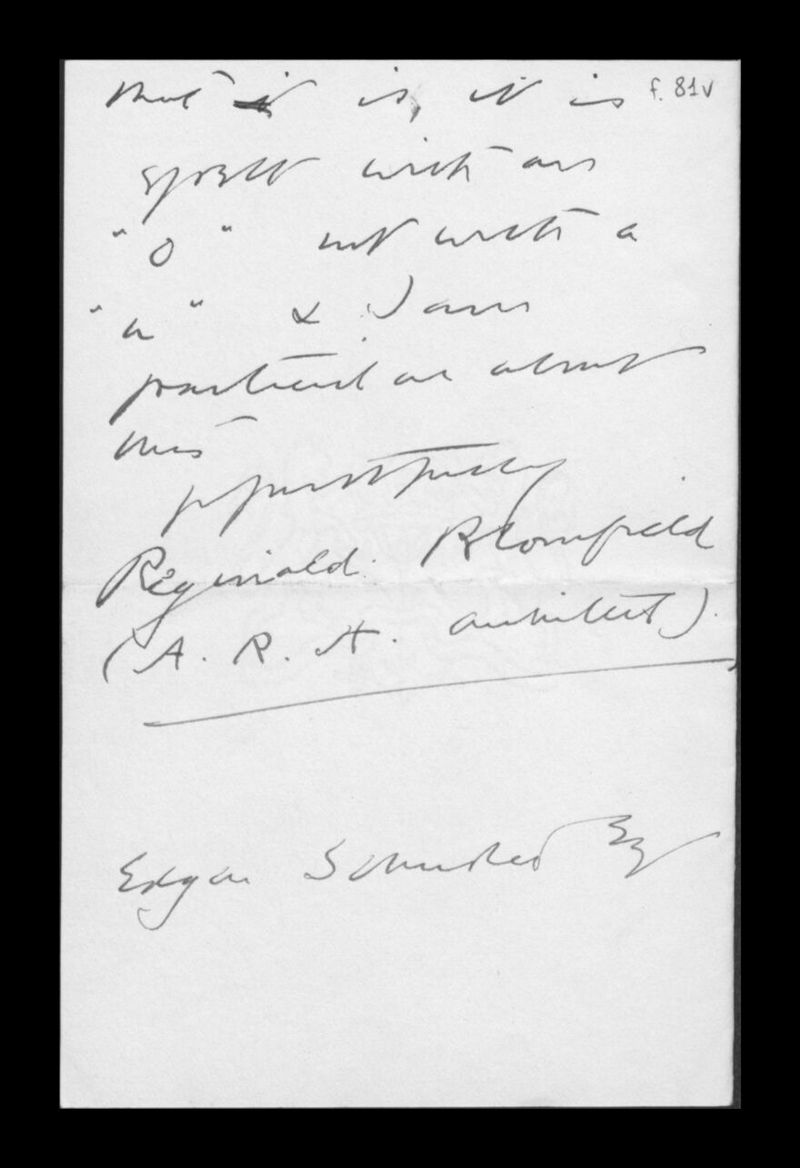 that it is, it is f. 81v
spelt with an
"o" not with a
"u" & I am
particular about
this
yrs faithfully
Reginald Blomfield
(A. R. A. architect).
Edgar Schuster Esq